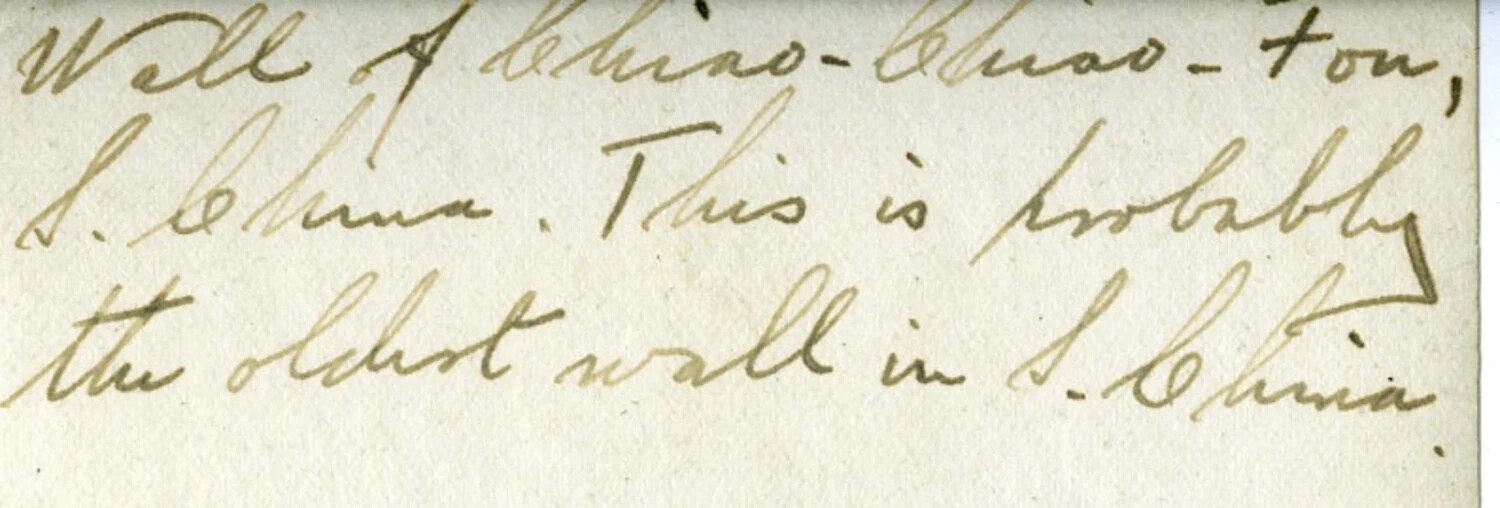 Wall of Chiao-Chiao-Fou,
S. China. This is probably
the oldest wall in S. China.